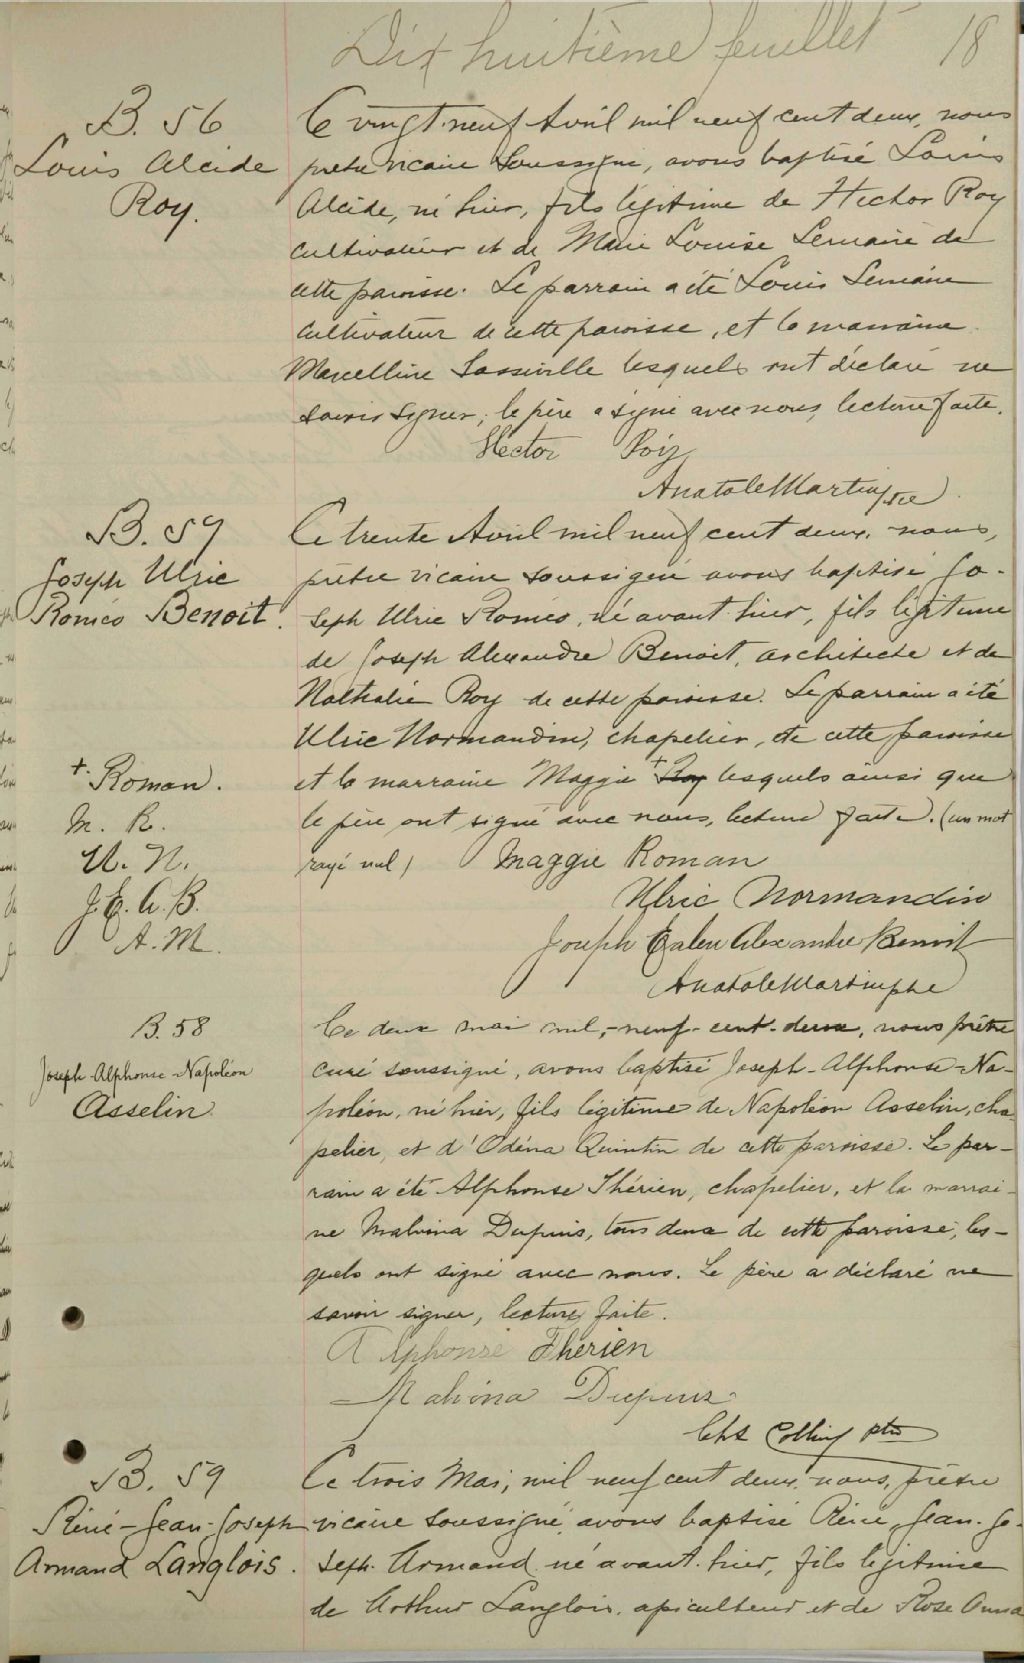 Dix huitième feuillet 18
B. 56
Louis Alcide
Roy.
Ce vingt-neuf Avril mil neuf cent deux, nous
prêtre vicaire soussigné, avons baptisé Louis
Alcide, né hier, fils légitime de Hector Roy
cultivateur et de Marie Louise Lemaire de
cette paroisse. Le parrain a été Louis Lemaire
cultivateur de cette paroisse, et la marraine
Marcelline Sasseville lesquels ont déclaré ne
savoir signer; le père a signé avec nous, lecture faite.
Hector Roy
Anatole Martin, ptre
B. 57
Joseph Ulric
Roméo Benoit.
Ce trente Avril mil neuf cent deux, nous,
prêtre vicaire soussigné avons baptisé Jo-
seph Ulric Roméo, né avant hier, fils légitime
de Joseph Alexandre Benoit, architecte et de
Nathalie Roy de cette paroisse. Le parrain a été
Ulric Normandin, chapelier, de cette paroisse
et la marraine Maggie + Roy lesquels ainsi que
le père ont signé avec nous, lecture faite. (un mot
rayé nul)
+ Roman.
M. R.
U. N.
J. E. A. B.
A. M.
Maggie Roman
Ulric Normandin
Joseph Alexandre Benoit
Anatole Martin ptre
B. 58
Joseph-Alphonse-Napoléon
Asselin
Ce deux mai mil-neuf-cent-deux, nous prêtre
curé soussigné, avons baptisé Joseph-Alphonse-Na-
poléon, né hier, fils légitime de Napoléon Asselin, cha-
pelier, et d'Odéna Quintin de cette paroisse. Le par-
rain a été Alphonse Thérien, chapelier, et la marrai-
ne Malvina Dupuis, tous deux de cette paroisse, les-
quels ont signé avec nous. Le père a déclaré ne
savoir signer, lecture faite.
Alphonse Thérien
Malvina Dupuis
Chs Collin ptre
B. 59
Réné-Jean-Joseph
Armand Langlois.
Ce trois Mai, mil neuf cent deux, nous, prêtre
vicaire soussigné, avons baptisé Réné, Jean-Jo-
seph-Armand né avant-hier, fils légitime
de Arthur Langlois, apiculteur et de Rose Anna